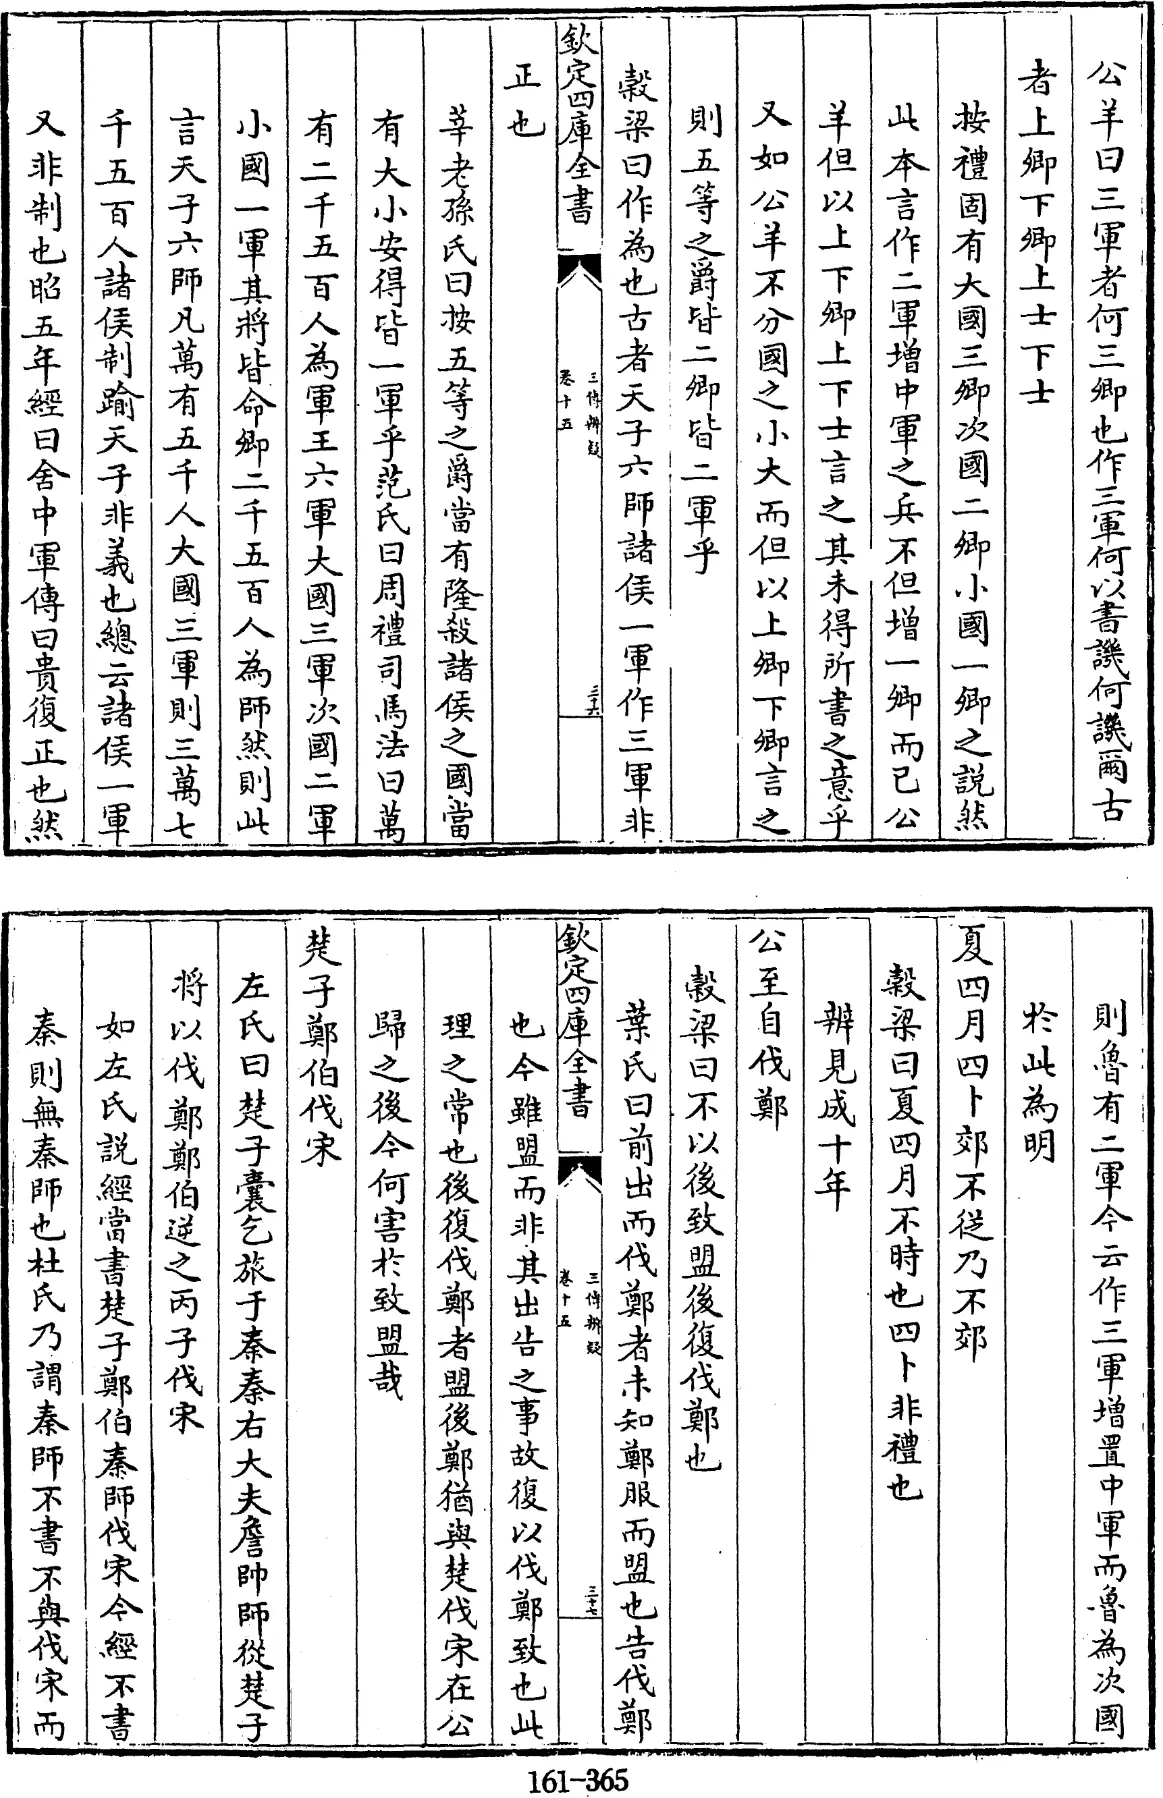 公羊曰三軍者何三卿也作三軍何以書譏何譏爾古
者上卿下卿上士下士
按禮固有大國三卿次國二卿小國一卿之説然
此本言作二軍增中軍之兵不但增一卿而已公
羊但以上下卿上下士言之其未得所書之意乎
又如公羊不分國之小大而但以上卿下卿言之
則五等之爵皆二卿皆二軍乎
榖梁曰作為也古者天子六師諸侯一軍作三軍非
欽定四庫全書
三傳辨疑
卷十五
三十六
正也
莘老孫氏曰按五等之爵當有隆殺諸侯之國當
有大小安得皆一軍乎范氏曰周禮司馬法曰萬
有二千五百人為軍王六軍大國三軍次國二軍
小國一軍其將皆命卿二千五百人為師然則此
言天子六師凡萬有五千人大國三軍則三萬七
千五百人諸侯制踰天子非義也總云諸侯一軍
又非制也昭五年經曰舍中軍傳曰貴復正也然
則魯有二軍今云作三軍增置中軍而魯為次國
於此為明
夏四月四卜郊不從乃不郊
榖梁曰夏四月不時也四卜非禮也
辨見成十年
公至自伐鄭
榖梁曰不以後致盟後復伐鄭也
葉氏曰前出而伐鄭者未知鄭服而盟也告伐鄭
欽定四庫全書
三傳辨疑
卷十五
三十七
也今雖盟而非其出告之事故復以伐鄭致也此
理之常也後復伐鄭者盟後鄭猶與楚伐宋在公
歸之後今何害於致盟哉
楚子鄭伯伐宋
左氏曰楚子囊乞旅于秦秦右大夫詹帥師從楚子
將以伐鄭鄭伯逆之丙子伐宋
如左氏説經當書楚子鄭伯秦師伐宋今經不書
秦則無秦師也杜氏乃謂秦師不書不與伐宋而
161-365